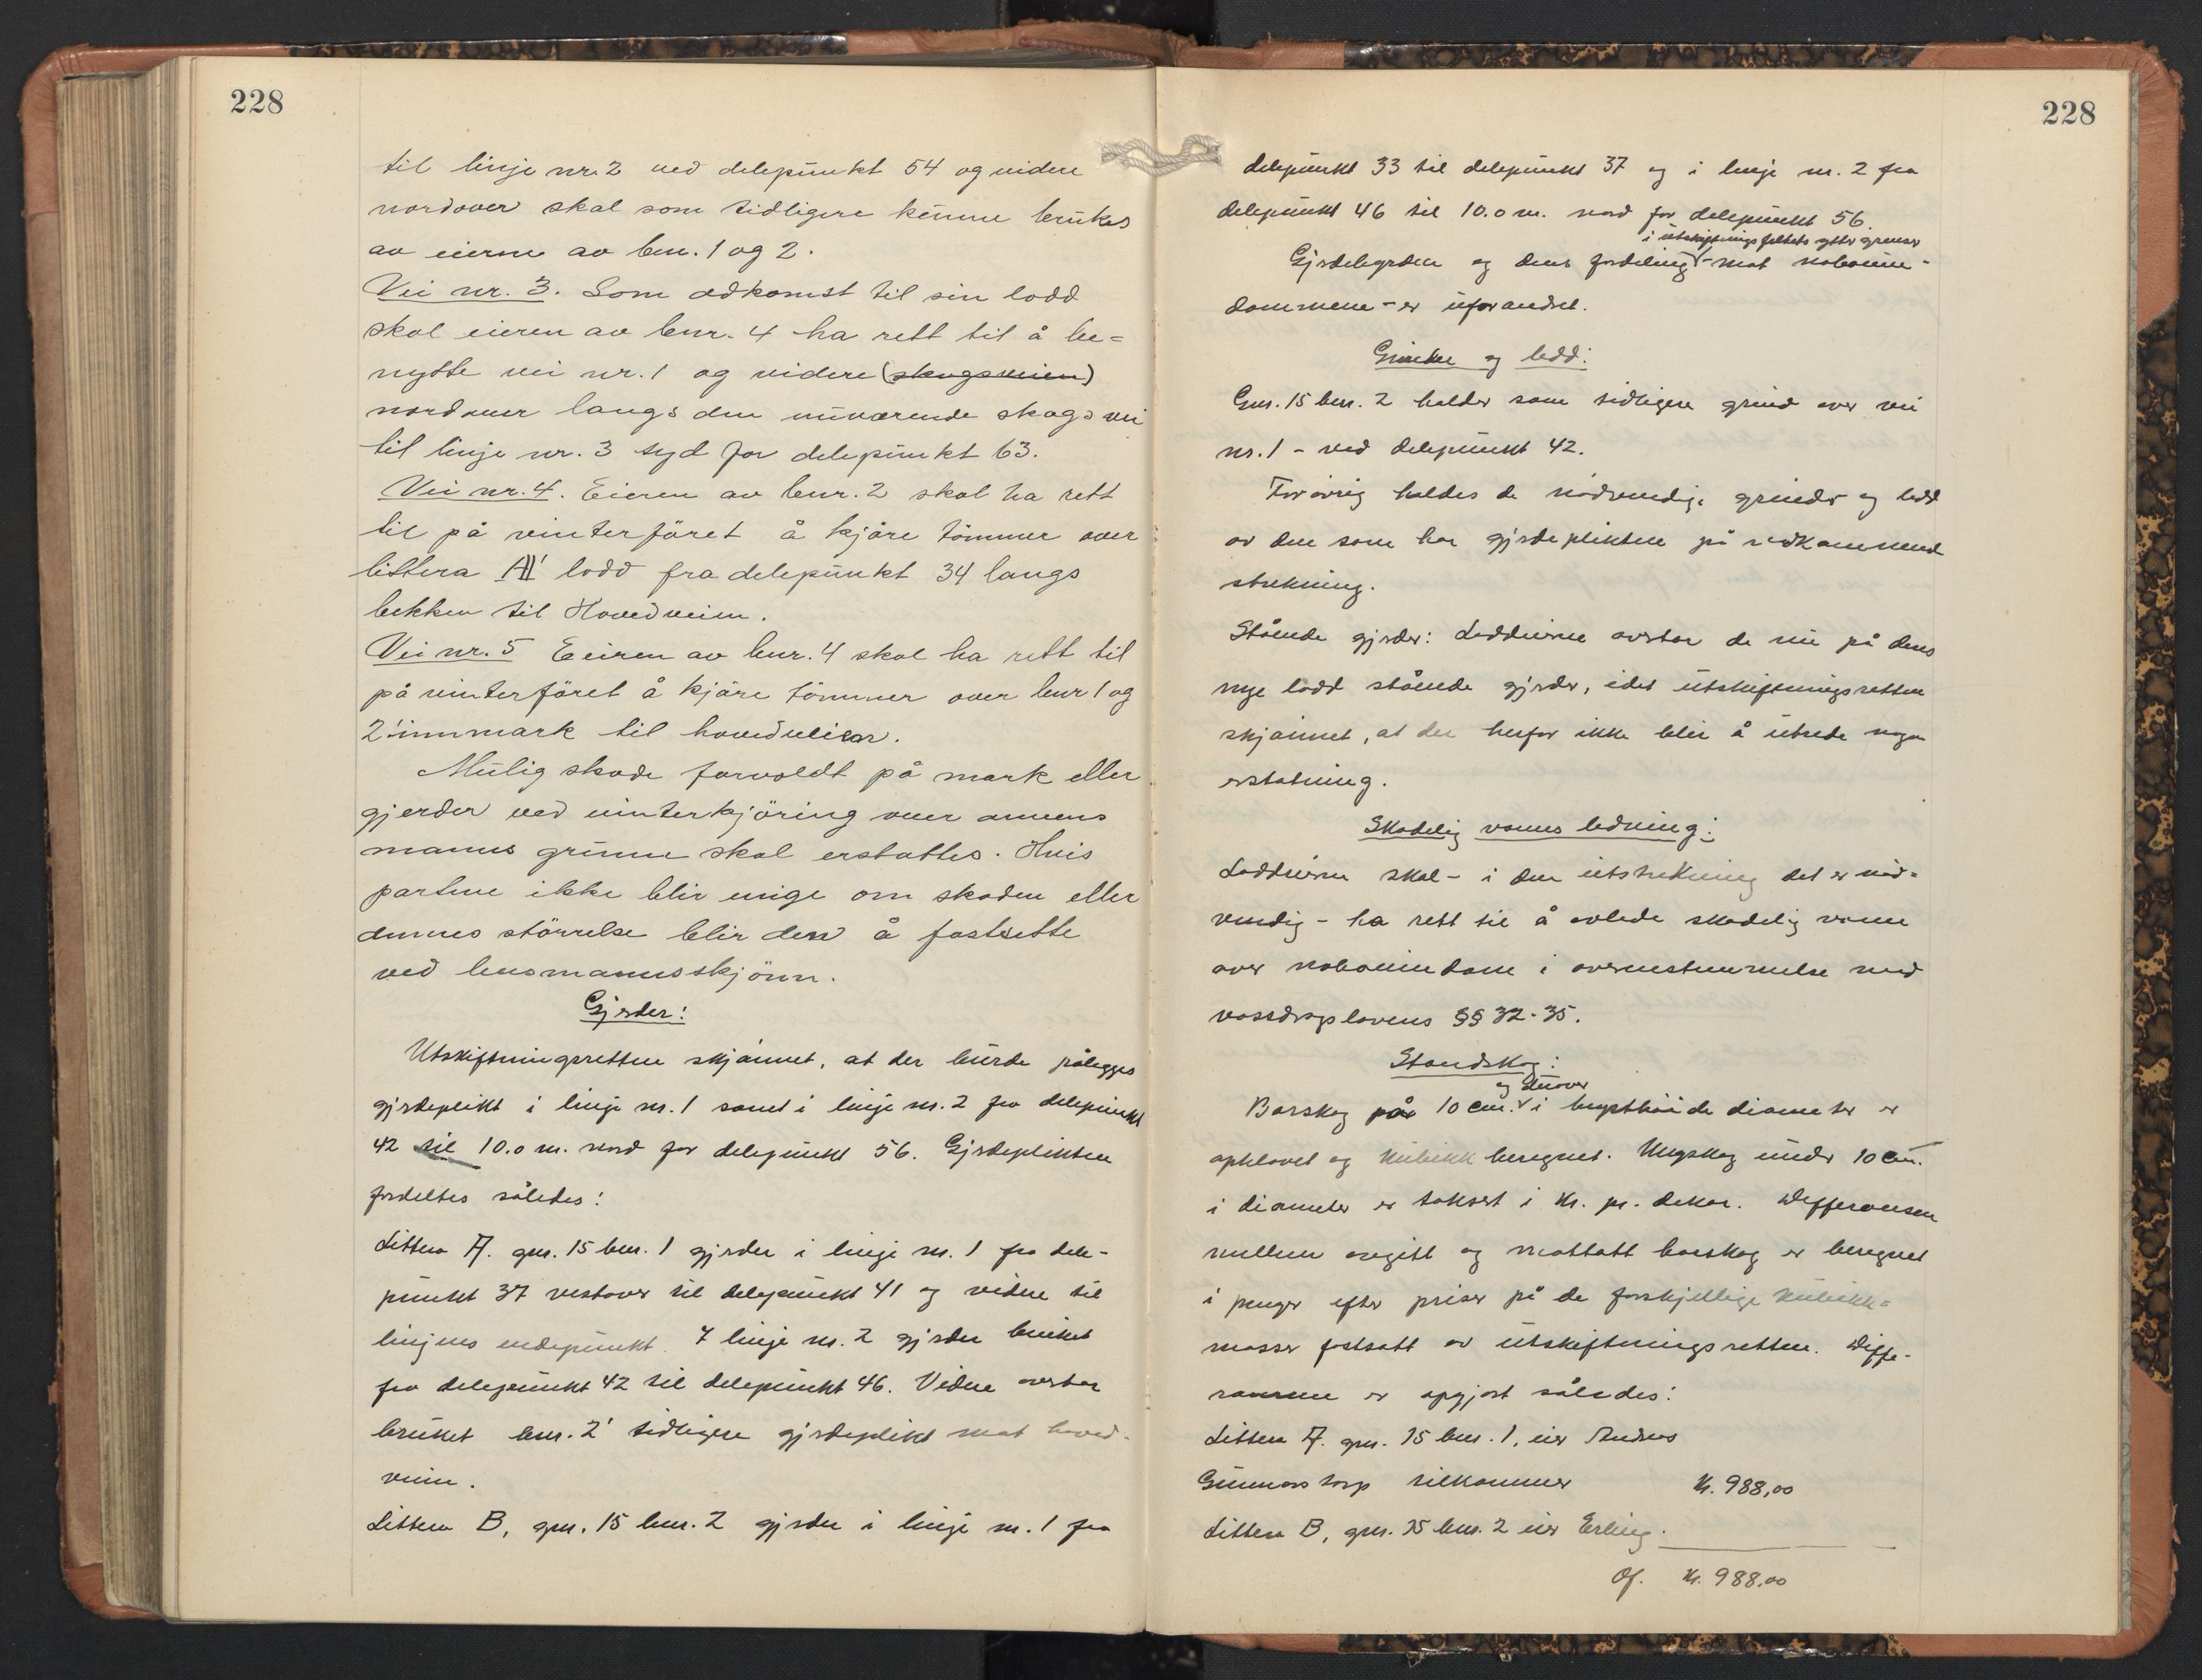 228
til linje nr. 2 ved delepunkt 54 og videre
nordover skal som tidligere kunne brukes
av eierne av bnr. 1 og 2.
Vei nr. 3. Som adkomst til sin lodd
skal eieren av bnr. 4 ha rett til å be=
nytte vei nr. 1 og videre (skogsveien)
nordover langs den nuværende skogsvei
til linje nr. 3 syd for delepunkt 63.
Vei nr. 4. Eieren av bnr. 2 skal ha rett
til på vinterföret å kjöre tömmer over
littera A' lodd fra delepunkt 34 langs
bekken til Hovedveien.
Vei nr. 5 Eeiren av bnr. 4 skal ha rett til
på vinterföret å kjöre tömmer over bnr 1 og
2' innmark til hovedveien.
Mulig skade forvoldt på mark eller
gjerder ved vinterkjöring over annens
manns grunn skal erstattes. Hvis
partene ikke blir enige om skaden eller
dennes störrelse blir den å fastsette
ved lensmannsskjönn.
Gjerder:
Utskiftningsretten skjönnet, at der burde pålegges
gjerdeplikt i linje nr. 1 samt i linje nr. 2 fra delepunkt
42 til 10.0 m. nord for delepunkt 56. Gjerdeplikten
fordeltes således:
Littera A. gnr. 15 bnr. 1 gjerder i linje nr. 1 fra dele-
punkt 37 vestover til delepunkt 41 og videre til
linjens endepunkt. I linje nr. 2 gjerder bruket
fra delepunkt 42 til delepunkt 46. Videre overtar
bruket bnr. 2' tidligere gjerdeplikt mot hoved-
veien.
Littera B, gnr. 15 bnr. 2 gjerder i linje nr. 1 fra
228
delepunkt 33 til delepunkt 37 og i linje nr. 2 fra
delepunkt 46 til 10.0 m. nord for delepunkt 56.
i utskiftningsfeltets ytter grenser
Gjerdebyrden og dens fordeling - mot naboeien-
dommene - er uforandret.
Grinder og ledd:
Gnr. 15 bnr. 2 holder som tidligere grind over vei
nr. 1 - ved delepunkt 42.
Forövrig holdes de nödvendige grinder og ledd
av den som har gjerdeplikten på vedkommende
strekning.
Stående gjerder: Loddeierne overtar de nu på deres
nye lodd stående gjerder, idet utskiftningsretten
skjönnet, at der herfor ikke blir å utrede nogen
erstatning.
Skadelig vanns ledning:
Loddeierne skal - i den utstrekning det er nöd-
vendig - ha rett til å avlede skadelig vann
over naboeiendom i overenstemmelse med
vassdragslovens §§ 32-35.
Standskog:
og derover
Barskog på 10 cm. i brysthöide diameter er
opklavet og kubikk beregnet. Ungskog under 10 cm.
i diameter er taksert i kr. pr. dekar. Differensen
mellem avgitt og mottatt barskog er beregnet
i penger efter priser på de forskjellige kubikk=
masser fastsatt av utskiftningsretten. Diffe-
ransene er opgjort således:
Littera A. gnr. 15 bnr. 1, eier Andreas
Gunnarstorp tilkommer kr. 988,00
Littera B, gnr. 15 bnr. 2 eier Erling
Of. kr. 988,00